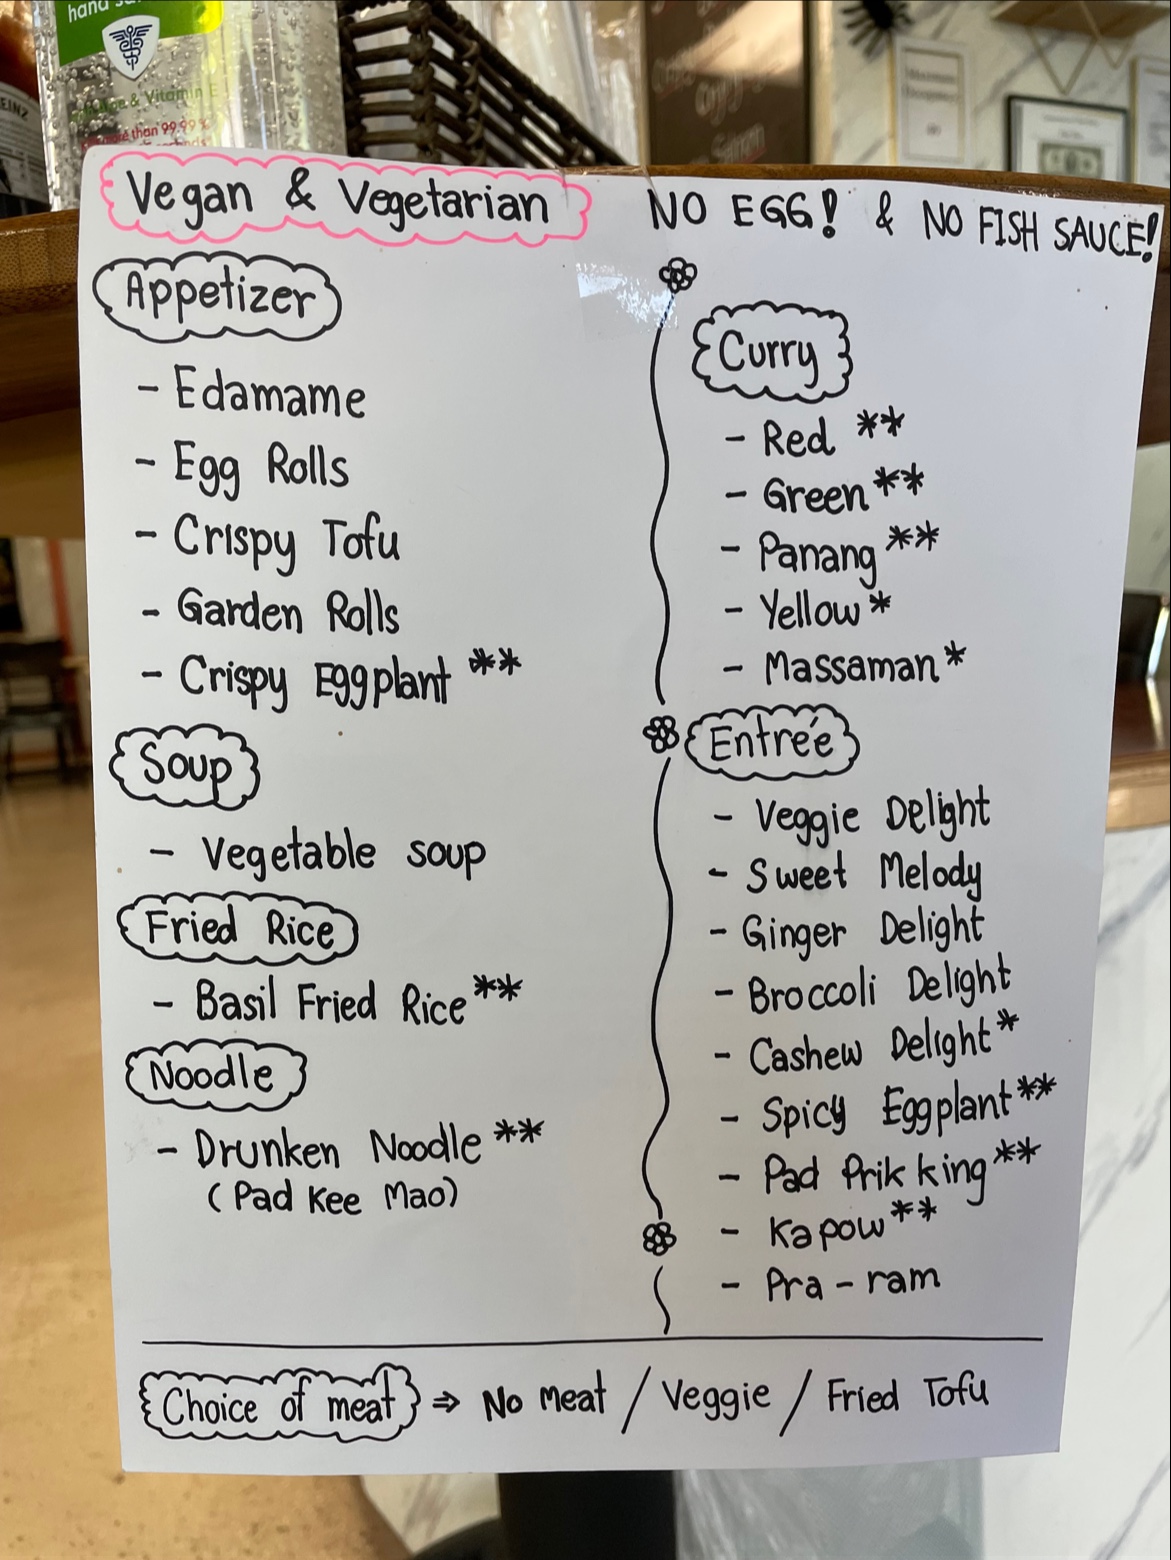 hand
& Vitamin E
than 99.99 %
EINZ
Vegan & Vegetarian
NO EGG! & NO FISH SAUCE!
Appetizer
- Edamame
- Egg Rolls
- Crispy Tofu
- Garden Rolls
- Crispy Eggplant **
Soup
- Vegetable soup
Fried Rice
- Basil Fried Rice **
Noodle
- Drunken Noodle **
(Pad Kee Mao)
Curry
- Red **
- Green **
- Panang **
- Yellow *
- Massaman *
Entrée
- Veggie Delight
- Sweet Melody
- Ginger Delight
- Broccoli Delight
- Cashew Delight *
- Spicy Eggplant **
- Pad Prik king **
- Kapow **
- Pra-ram
Choice of meat ⇒ No meat / Veggie / Fried Tofu